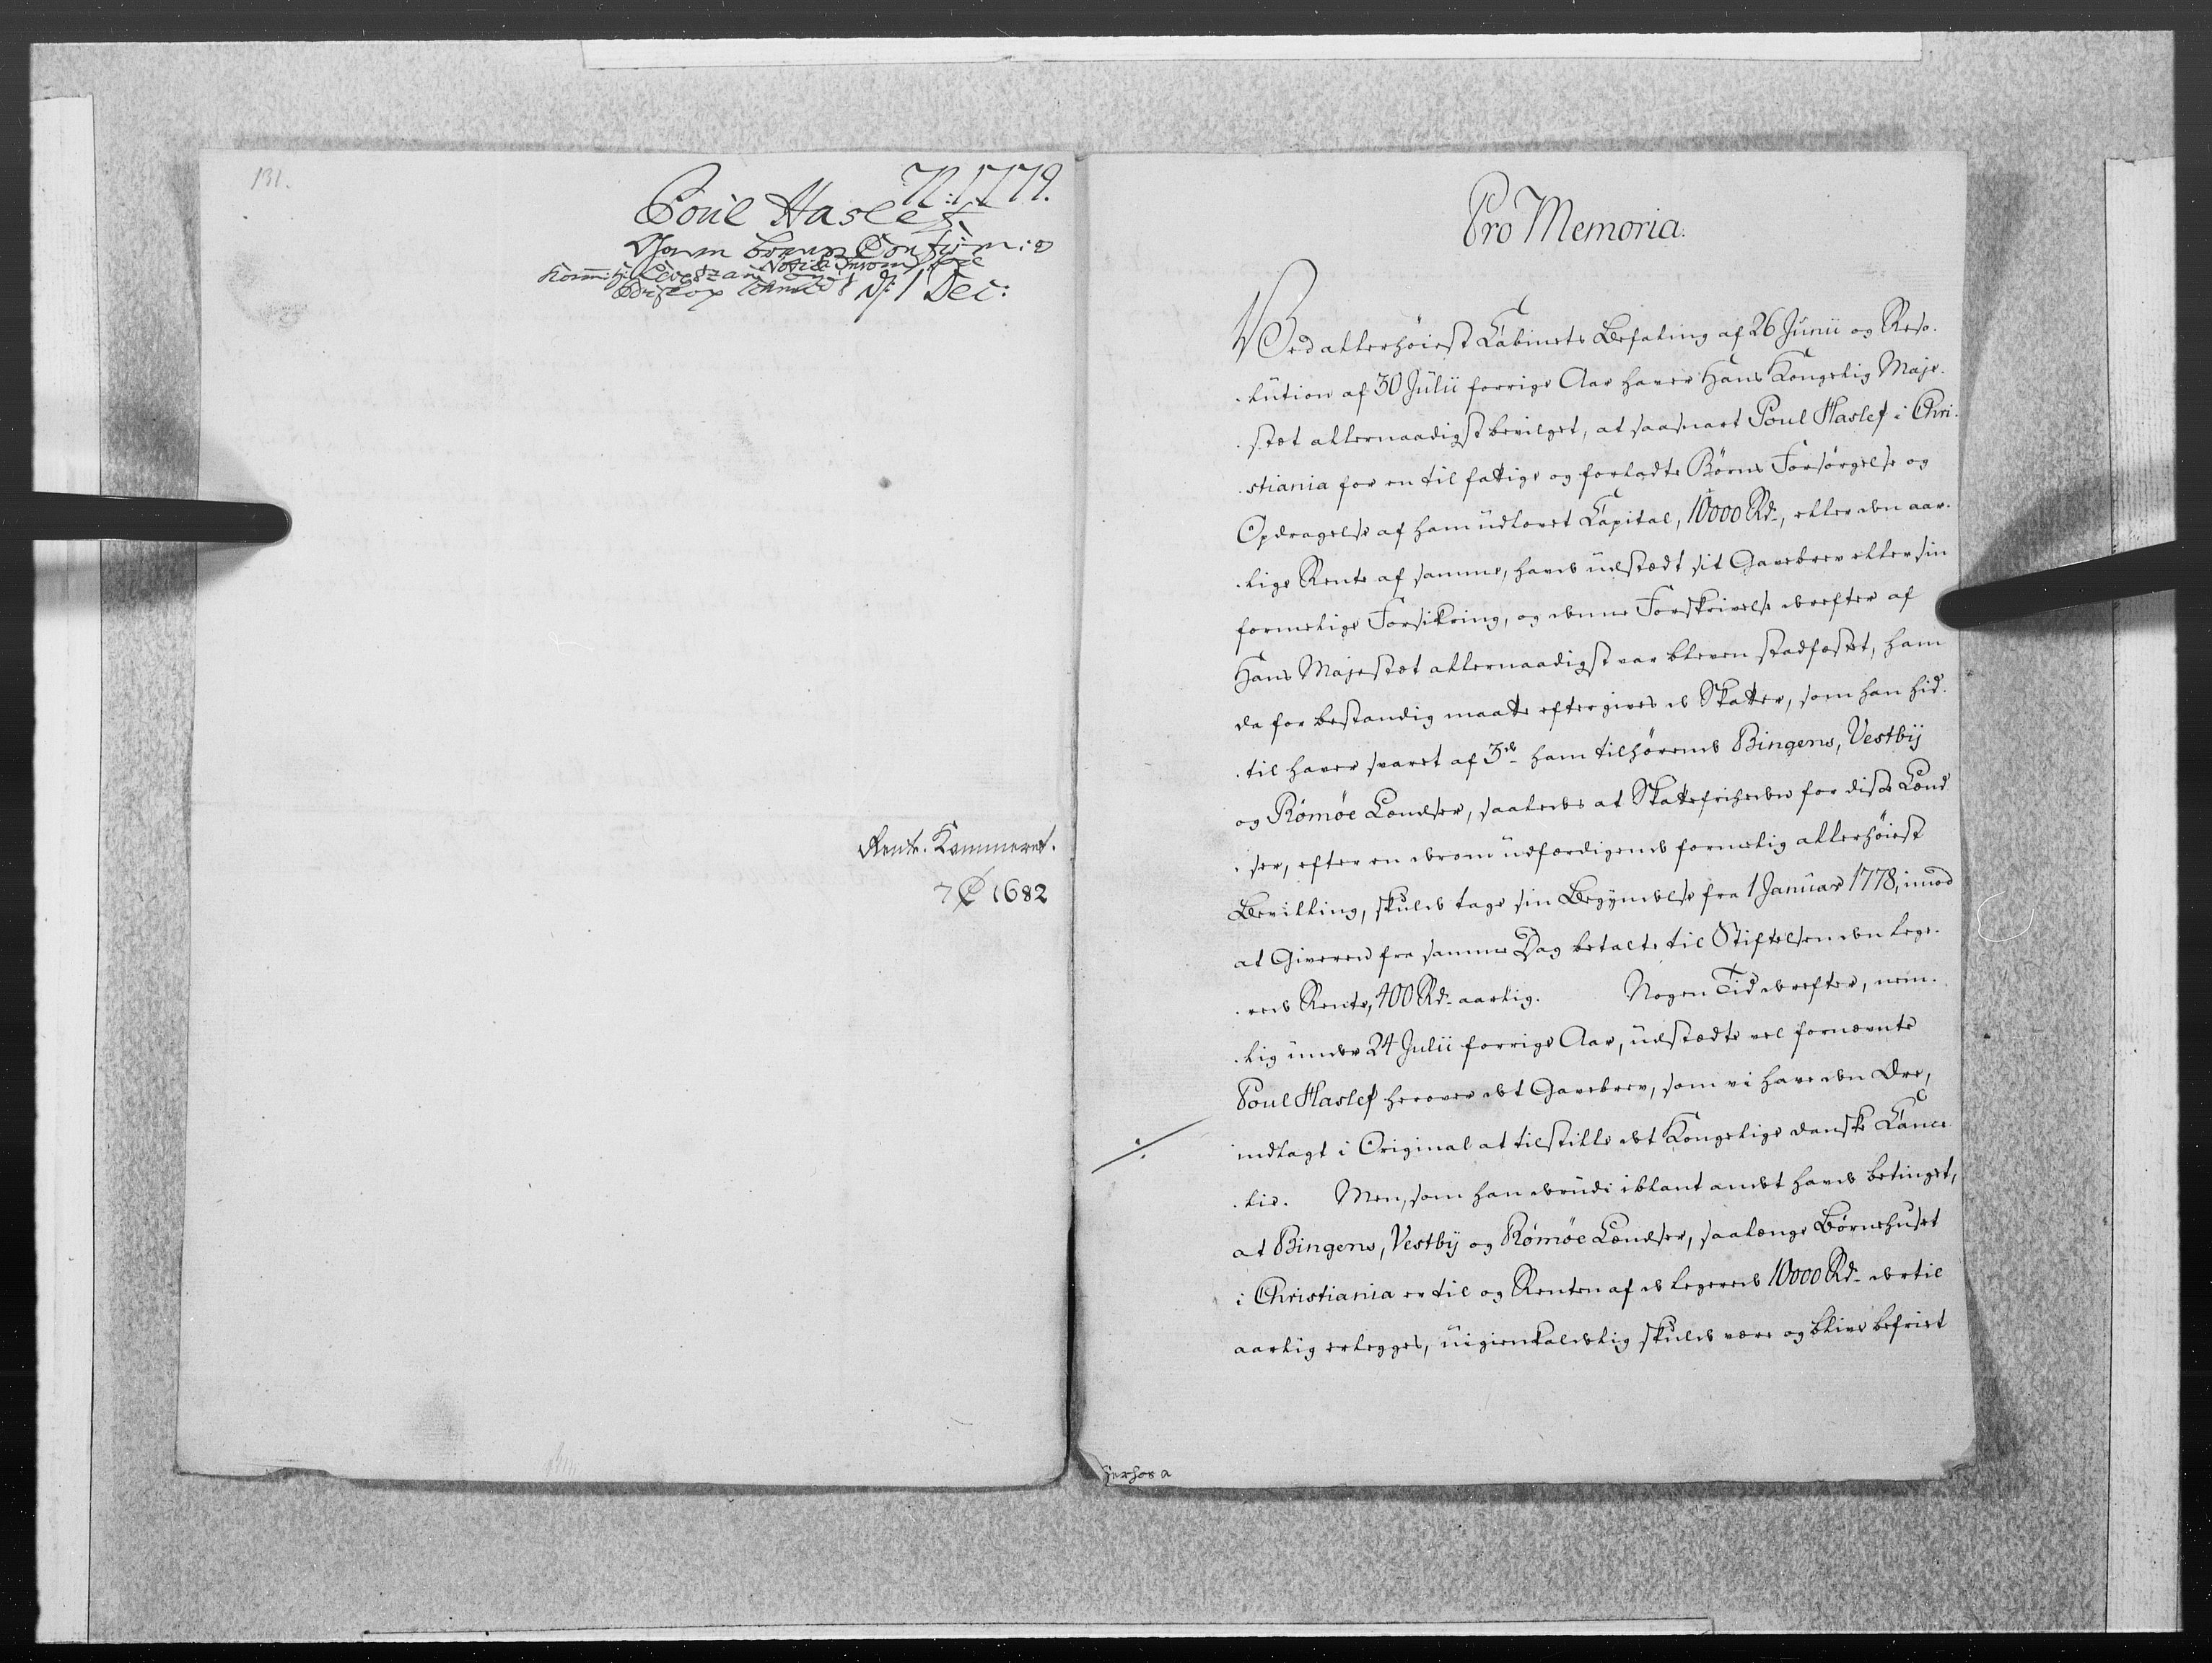 131.
N: 1779.
Poul Haslef.
Notice
d: 1 Dec:
Rente-Kammeret.
1682
Pro Memoria.
Ved allerhøiest Cabinets Befaling af 26 Junii og Reso-
lution af 30 Julii forrige Aar haver Hans Kongelig Maje-
stæt allernaadigst bevilget, at saasnart Poul Haslef i Chri-
stiania for en til fattige og forladte Børns Forsørgelse og
Opdragelse af ham udlovet Capital, 10000 Rd., eller den aar-
lige Rente af samme, havde udstædt sit Gavebrev eller sin
formelige Forsikring, og denne Forskrivelse derefter af
Hans Majestæt allernaadigst var bleven stadfæstet, ham
da for bestandig maatte eftergives de Skatter, som han hid-
til haver svaret af 3de ham tilhørende Bingens, Vestbÿ
og Rømøe Lændser, saaledes at Skattefriheden for disse Lænd-
ser, efter en derom udfærdigende formelig allerhøiest
Bevilling, skulde tage sin Begyndelse fra 1 Januar 1778, imod
at Giveren fra samme Dag betalte til Stiftelsen den lege-
rede Rente, 400 Rd. aarlig. Nogen Tid derefter, nem-
lig under 24 Julii forrige Aar, udstædte vel fornævnte
Poul Haslef herover det Gavebrev, som vi have den Ære,
indlagt i Original at tilstille det Kongelige danske Cance-
lie. Men, som han derudi iblant andet havde betinget,
at Bingens, Vestbÿ og Rømøe Lændser, saalænge Børnehuset
i Christiania er til og Renten af de legerede 10000 Rd. dertil
aarlig erlegges, uigienkaldelig skulde være og blive befriet
herhos a